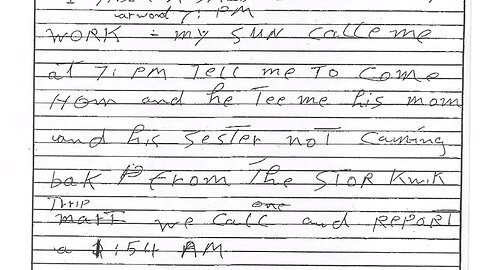 arword 7: PM
WORK - my SUN calle me
at 7: PM Tell me To Come
Hom and he Tee me his mom
and his sester not Caming
bak From The STOR Kwik
Trip one
matt we Call and REPORT
a 1:54 AM